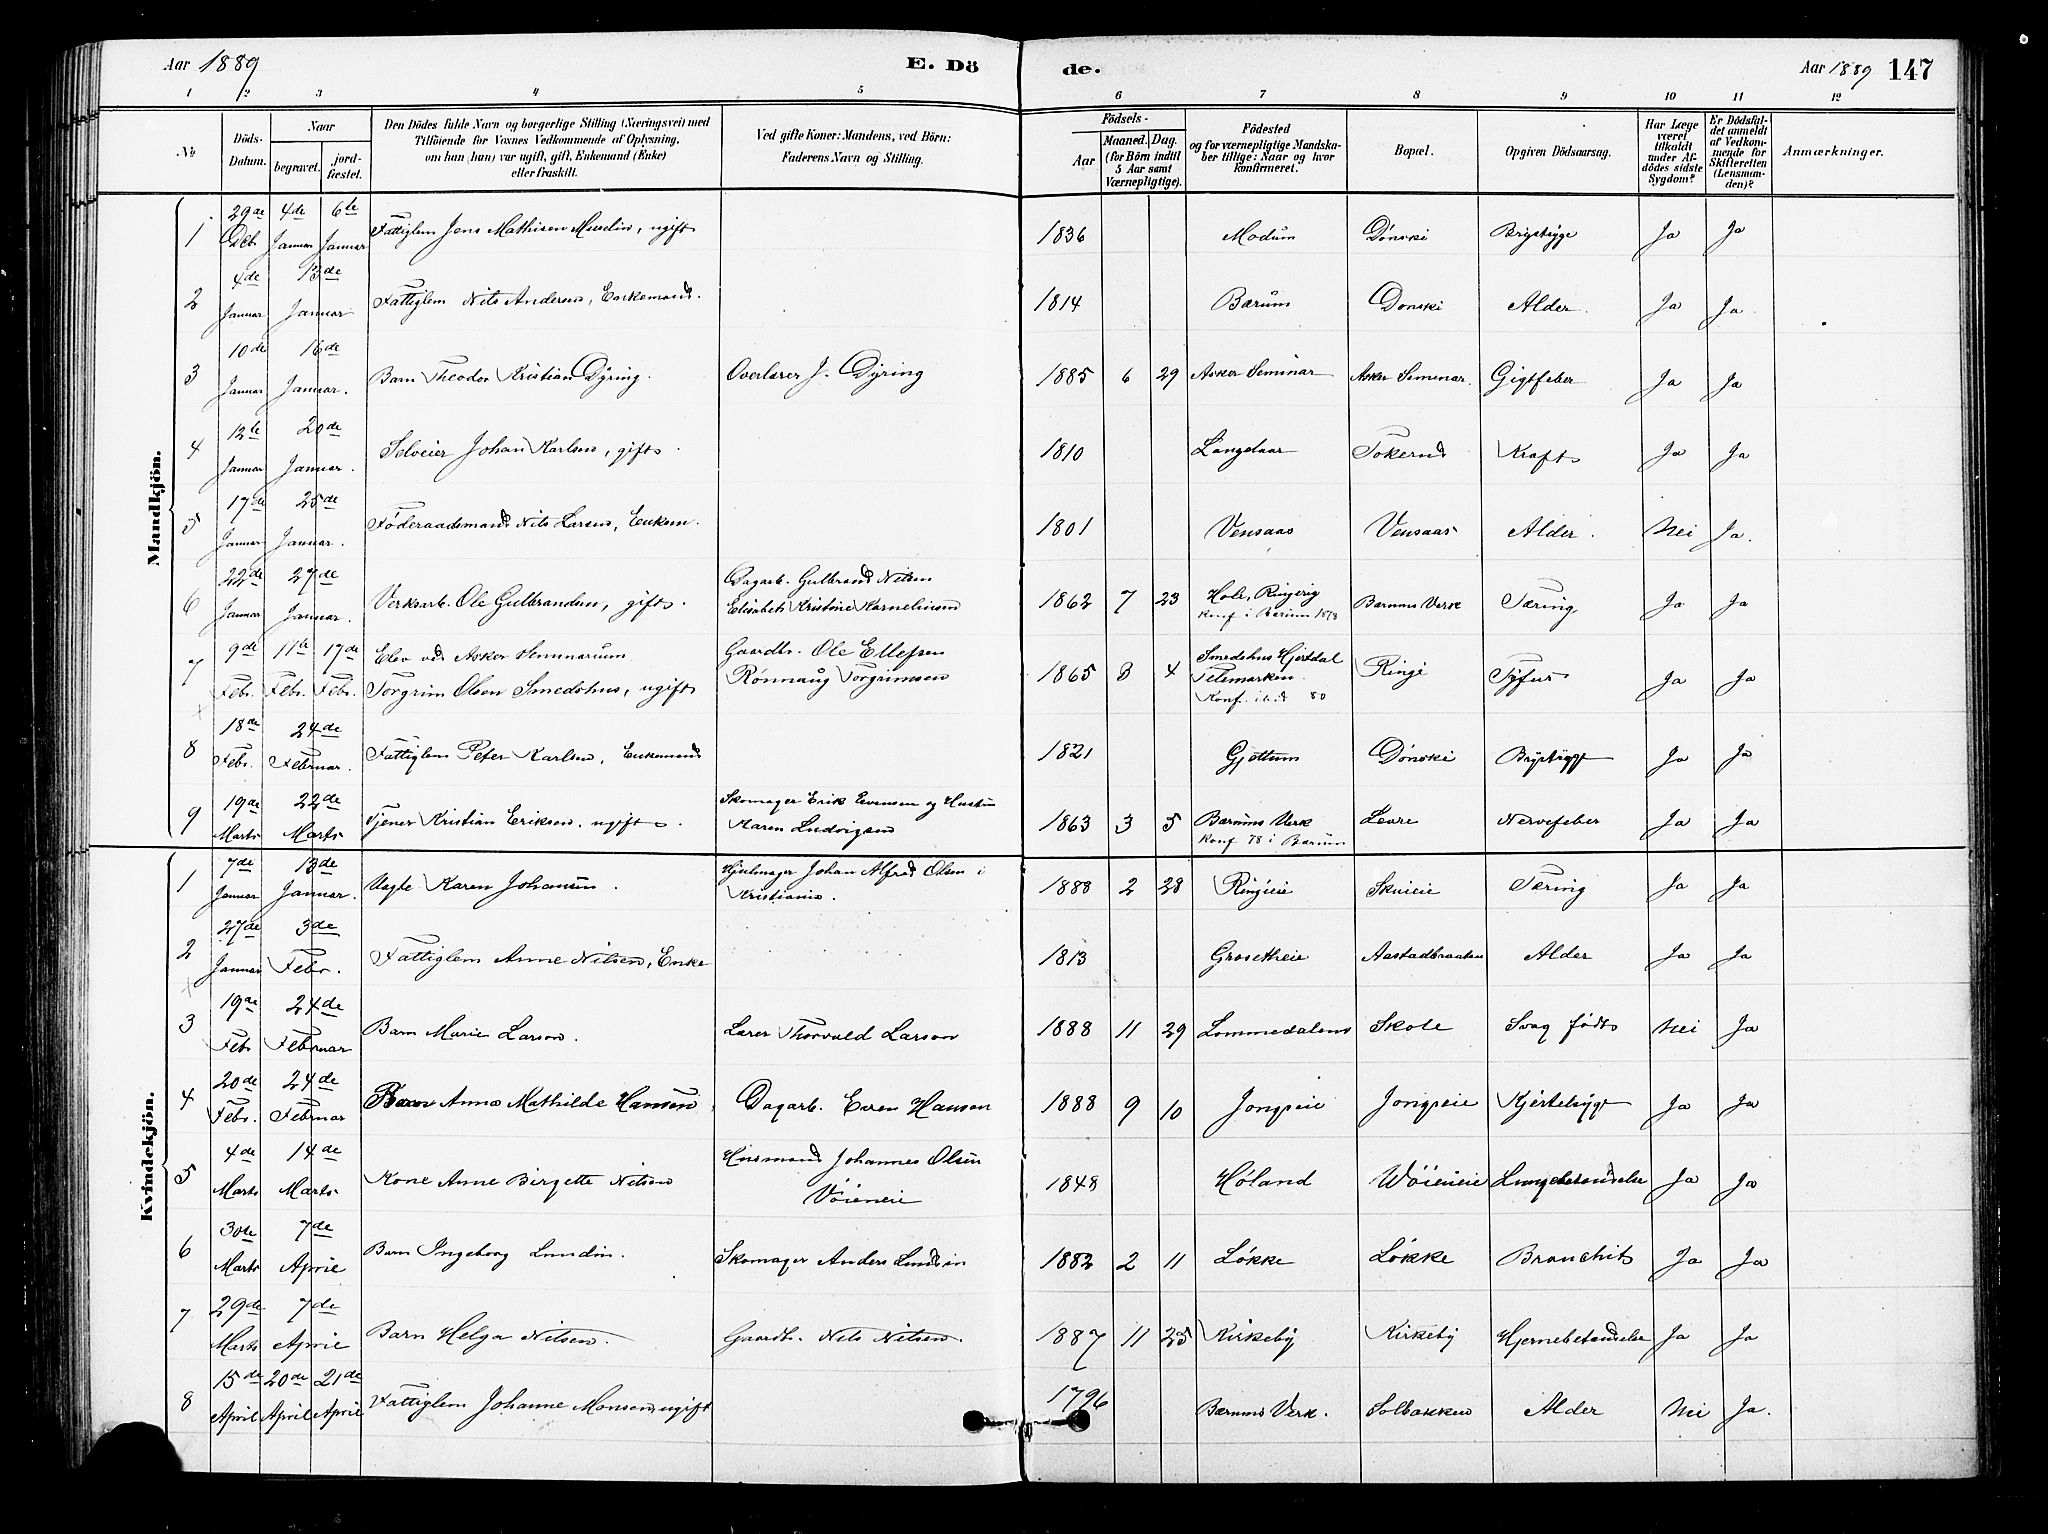 Aar 1889 E. Dö
de. Aar 1889 147
1 2 3 4 5 6 7 8 9 10 11 12
№
Döds-Datum.
Naar
begravet.
jord-fæstet.
Den Dödes fulde Navn og borgerlige Stilling (Næringsvei) med
Tilföiende for Voxnes Vedkommende af Oplysning,
om han (hun) var ugift, gift, Enkemand (Enke)
eller fraskilt.
Ved gifte Koner: Mandens, ved Börn:
Faderens Navn og Stilling.
Födsels-
Aar
Maaned. Dag.
(for Börn indtil
5 Aar samt
Værnepligtige).
Födested
og for værnepligtige Mandska-
ber tillige: Naar og hvor
konfirmeret.
Bopæl.
Opgiven Dödsaarsag.
Har Læge
været
tilkaldt
under Af-
dödes sidste
Sygdom?
Er Dödsfal-
det anmeldt
af Vedkom-
mende for
Skifteretten
(Lensman-
den)?
Anmærkninger.
Mandkjön.
1 29de Deb. 4de Januar 6te Januar Fattiglem Jens Mathisen Muselin, ugift 1836 Modum Dønski Brystsyge Ja Ja
2 4de Januar 13de Januar Fattiglem Nils Andersen, Enkemand. 1814 Bærum Dønski Alder. Ja Ja.
3 10de Januar 16de Januar. Barn Theodor Kristian Dÿring. Overlærer J. Dÿring 1885 6 29 Asker Seminar Asker Seminar. Gigtfeber Ja Ja
4 12te Januar 20de Januar. Selveier Johan Karlsen, gift. 1810 Langelaar Tokerud Kræft Ja Ja
5 17de Januar 25de Januar. Føderaadsmand Nils Larsen, Enkem. 1801 Vensaas Vensaas Alder. Nei Ja.
6 22de Januar 27de Januar. Verksarb. Ole Gulbrandsen, gift. Dagarb. Gulbrand Nilsen
Elisabeth Kristine Korneliusen 1862 7 23 Hole, Ringerig
Konf i Bærum 1878 Bærums Verk Tæring Ja Ja
7 9de Febr. 11te Febr. 17de Febr. Elev ved Asker Seminarium
Torgrim Olsen Smedshus, ugift Gaardbr. Ole Ellefsen
Rønnaug Torgrimsen 1865 3 4 Smedshus Hjertdal
Telemarken.
Konf. ibid 80 Ringi Tÿfus Ja Ja
8 18de Febr. 24de Februar. Fattiglem Peter Karlsen, Enkemand 1821 Gjøttum Dønski Brÿstsyge Ja Ja
9 19de Marts 22de Marts Tjener Kristian Eriksen, ugift. Skomager Erik Evensen og Hustru
Karen Ludvigsen 1863 3 5 Bærums Verk
Konf 78 i Bærum Levre Nervefeber Ja Ja
Kvindekjön.
1 7de Januar 13de Januar. Ugte Karen Johansen. Hjulmager Johan Alfred Olsen i
Kristiania. 1888 2 28 Ringieie Skuieie Tæring Ja Ja
2 27de Januar 3de Febr. Fattiglem Anne Nilsen, Enke 1813 Grosetheie Aastadbraaten Alder Ja Ja
3 19de Feb 24de Februar Barn Marie Larson. Lærer Thorvald Larson 1888 11 29 Lommedalens Skole Svag født Nei Ja
4 20de Febr. 24de Februar Barn Anna Mathilde Hansen Dagarb. Even Hansen 1888 9 10 Jongseie Jongseie Kjertelsÿge Ja Ja
5 4de Marts 14de Marts Kone Anne Birgette Nilsen Husmand Johannes Olsen
Vøieneie 1848 Høland Wøieneie Lungebetændelse Ja Ja
6 30te Marts 7de April Barn Ingeborg Lundin. Skomager Anders Lundin 1882 2 11 Løkke Løkke Bronchit Ja Ja
7 29de Marts 7de April Barn Helga Nilsen. Gaardb. Nils Nilsen. 1887 11 25 Kirkebÿ Kirkebÿ Hjernebetændelse Ja Ja
8 15de April 20de April 21de April Fattiglem Johanne Monsen, ugift 1796 Bærums Verk. Solbakken Alder Nei Ja.